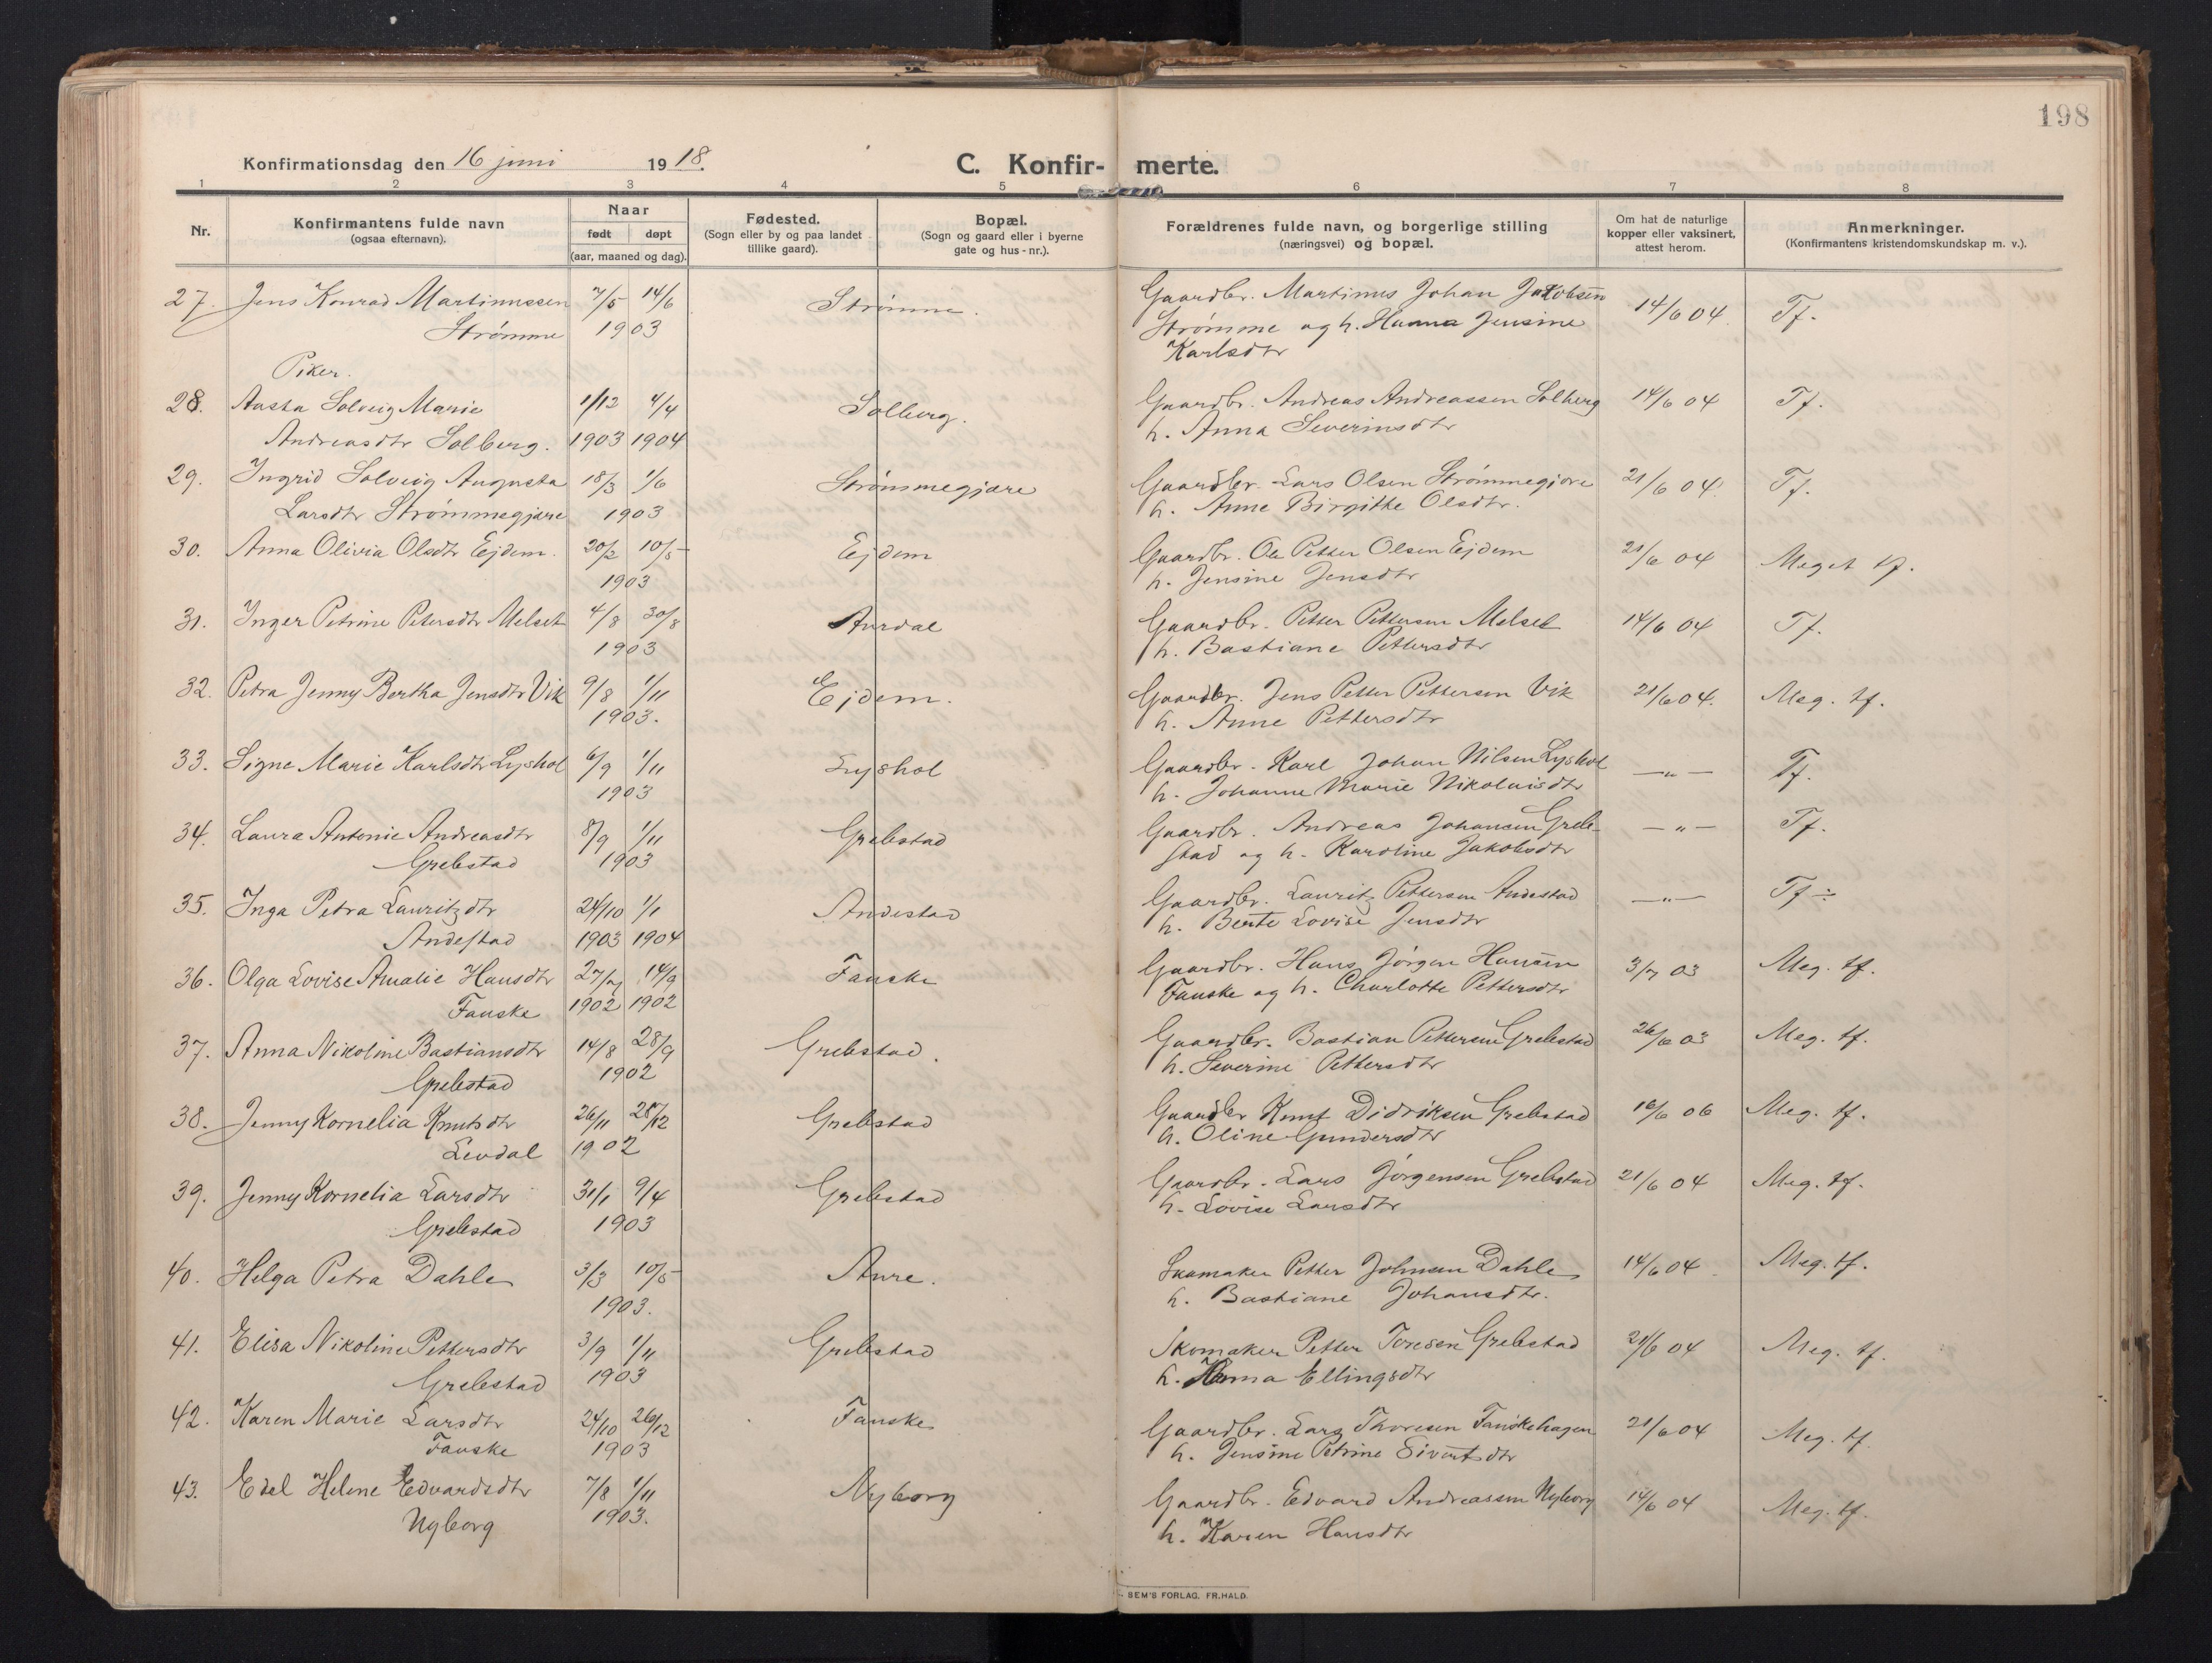 198
Konfirmationsdag den 16 juni 1918.
C. Konfirmerte.
1 2 3 4 5 6 7 8
Nr.
Konfirmantens fulde navn
(ogsaa efternavn).
Naar
født døpt
(aar, maaned og dag).
Fødested.
(Sogn eller by og paa landet
tillike gaard).
Bopæl.
(Sogn og gaard eller i byerne
gate og hus-nr.).
Forældrenes fulde navn, og borgerlige stilling
(næringsvei) og bopæl.
Om hat de naturlige
kopper eller vaksinert,
attest herom.
Anmerkninger.
(Konfirmantens kristendomskundskap m. v.).
27. Jens Konrad Martinussen 7/5 14/6 Strømme. Gaardbr. Martinus Johan Jakobsen 14/6 04 Tf.
Strømme 1903 Strømme og h. Hanna Jensine
Karlsdtr
Piker.
28. Aasta Solveig Marie 1/12 4/4 Solberg. Gaardbr. Andreas Andreassen Solberg 14/6 04 Tf.
Andreasdtr Solberg. 1903 1904 h. Anna Severinsdtr
29. Ingrid Solveig Augusta 18/3 1/6 Strømmegjære Gaardbr. Lars Olsen Strømmegjære 21/6 04. Tf.
Larsdtr Strømmegjære 1903 h. Anne Birgithe Olsdtr.
30. Anna Olivia Olsdtr Ejdem. 20/2 10/5 Ejdem Gaardbr. Ole Petter Olsen Ejdem 21/6 04 Meget tf.
1903 h. Jensine Jensdtr
31. Inger Petrine Petersdtr Melset 4/8 30/8 Aurdal Gaardbr. Petter Pettersen Melset 14/6 04 Tf.
1903 h. Bastiane Pettersdtr
32. Petra Jenny Bertha Jensdtr Vik 9/8 1/11 Ejdem. Gaardbr. Jens Petter Pettersen Vik 21/6 04. Meg. tf.
1903. h. Anne Pettersdtr
33. Signe Marie Karlsdtr Lyshol 6/9 1/11 Lyshol Gaardbr. Karl Johan Nilsen Lyshol —"— Tf.
1903 h. Johanne Marie Nikolaisdtr
34. Laura Antonie Andreasdtr 8/9 1/11 Grebstad Gaardbr. Andreas Johansen Greb- —"— Tf.
Grebstad 1903 stad og h. Karoline Jakobsdtr
35. Inga Petra Lauritzdtr 24/10 1/1 Andestad Gaardbr. Lauritz Pettersen Andestad —"— Tf ÷
Andestad 1903 1904 h. Bente Lovise Jensdtr
36. Olga Lovise Amalie Hansdtr 27/7 14/9 Fauske Gaardbr. Hans Jørgen Hansen 3/7 03 Meg. tf.
Fauske 1902 1902 Fauske og h. Charlotte Pettersdtr
37. Anna Nikoline Bastiansdtr 14/8 28/9 Grebstad. Gaardbr. Bastian Pettersen Grebstad 26/6 03 Meg. tf.
Grebstad 1902 h. Severine Pettersdtr
38. Jenny Kornelia Knutsdtr 26/11 28/12 Grebstad Gaardbr Knut Didriksen Grebstad 16/6 06 Meg. tf.
Levdal 1902 h. Oline Gundersdtr
39. Jenny Kornelia Larsdtr 31/1 9/4 Grebstad Gaardbr. Lars Jørgensen Grebstad 21/6 04 Meg. tf.
Grebstad 1903 h. Lovise Larsdtr
40. Helga Petra Dahle 3/3 10/5 Aure. Skomaker Petter Johnsen Dahle 14/6 04 Meg. tf.
1903. h. Bastiane Johansdtr.
41. Elisa Nikoline Pettersdtr 3/9 1/11 Grebstad Skomaker Petter Toresen Grebstad 21/6 04 Meg. tf.
Grebstad 1903 h. Anna Ellingsdtr
42. Karen Marie Larsdtr 24/10 26/12 Fauske Gaardbr. Lars Thoresen Fauskehagen 21/6 04 Meg. tf.
Fauske 1903 h. Jensine Petrine Sivertsdtr
43. Edel Helene Edvardsdtr 7/8 1/11 Nyborg Gaardbr. Edvard Andreassen Nyborg 14/6 04 Meg. tf.
Nyborg 1903. h. Karen Hansdtr
SEM'S FORLAG. FR.HALD.